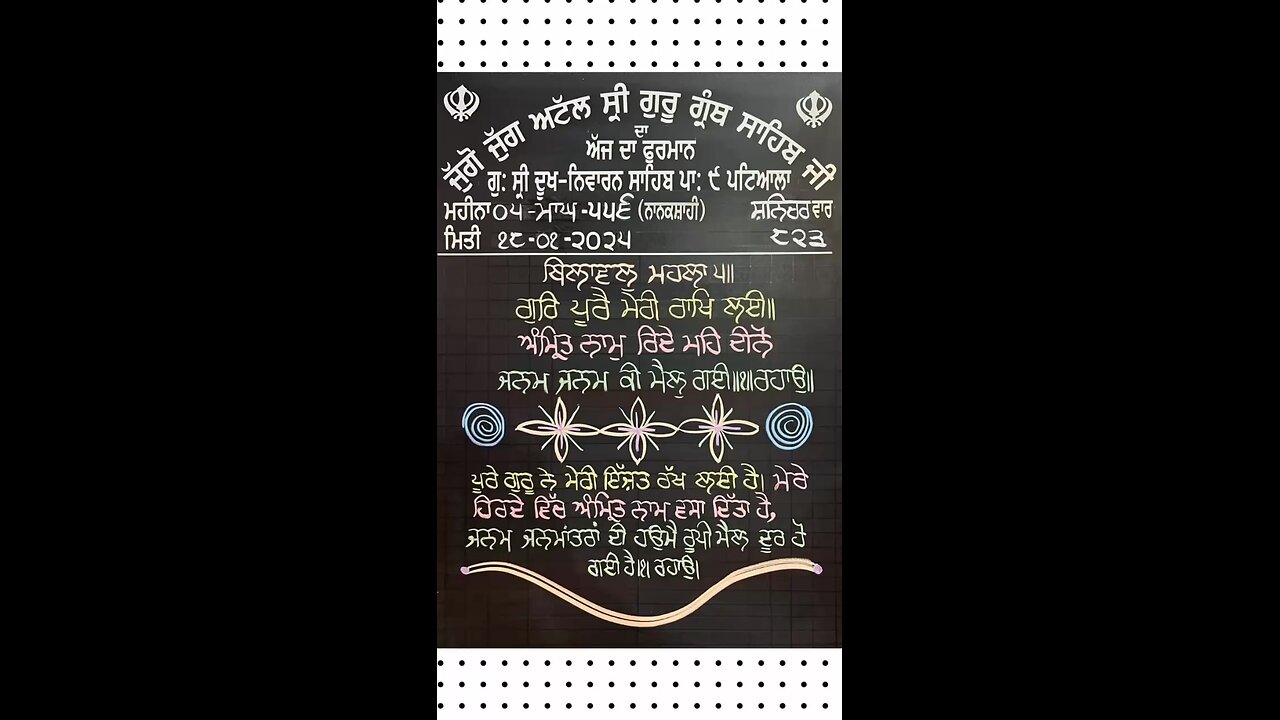 ਜੁੱਗੋ ਜੁੱਗ ਅਟੱਲ ਸ੍ਰੀ ਗੁਰੂ ਗ੍ਰੰਥ ਸਾਹਿਬ ਜੀ
ਦਾ
ਅੱਜ ਦਾ ਫੁਰਮਾਨ
ਗੁ: ਸ੍ਰੀ ਦੂਖ-ਨਿਵਾਰਨ ਸਾਹਿਬ ਪਾ: ੯ ਪਟਿਆਲਾ
ਮਹੀਨਾ ੦੫-ਮਾਘ-੫੫੬ (ਨਾਨਕਸ਼ਾਹੀ) ਸ਼ਨਿਚਰਵਾਰ
ਮਿਤੀ ੧੮-੦੧-੨੦੨੫ ੮੨੩
ਬਿਲਾਵਲੁ ਮਹਲਾ ੫॥
ਗੁਰਿ ਪੂਰੈ ਮੇਰੀ ਰਾਖਿ ਲਈ॥
ਅੰਮ੍ਰਿਤ ਨਾਮੁ ਰਿਦੇ ਮਹਿ ਦੀਨੋ
ਜਨਮ ਜਨਮ ਕੀ ਮੈਲੁ ਗਈ॥੧॥ਰਹਾਉ॥
ਪੂਰੇ ਗੁਰੂ ਨੇ ਮੇਰੀ ਇੱਜ਼ਤ ਰੱਖ ਲਈ ਹੈ। ਮੇਰੇ
ਹਿਰਦੇ ਵਿੱਚ ਅੰਮ੍ਰਿਤ ਨਾਮ ਵਸਾ ਦਿੱਤਾ ਹੈ,
ਜਨਮ ਜਨਮਾਂਤਰਾਂ ਦੀ ਹਉਮੈ ਰੂਪੀ ਮੈਲ ਦੂਰ ਹੋ
ਗਈ ਹੈ।੧। ਰਹਾਉ।